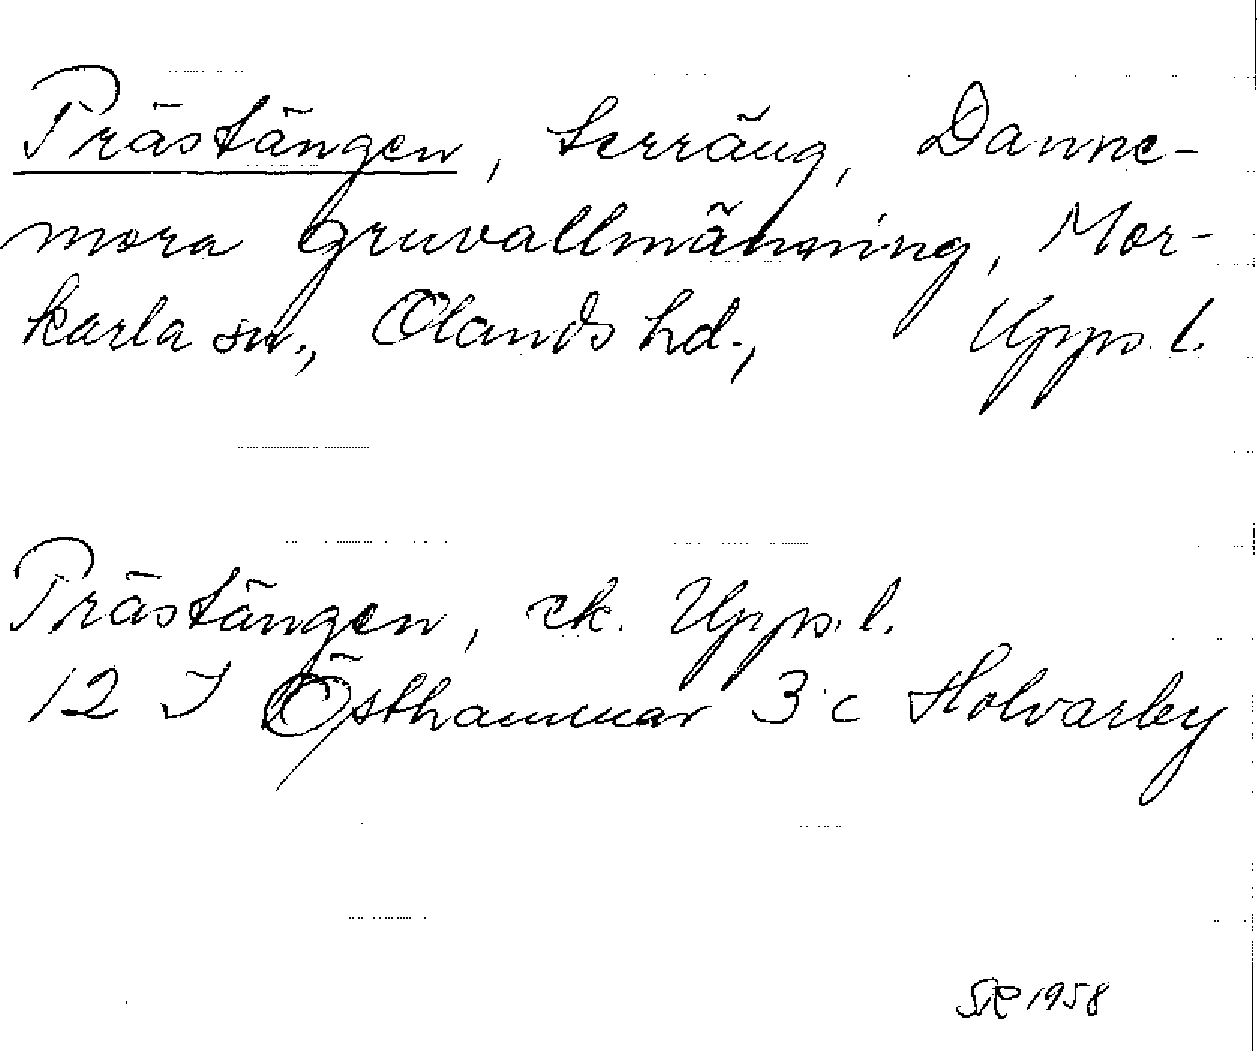 Prästängen, terräng, Danne-
mora gruvallmänning, Mor-
karla sn., Olands hd., Upps. l.
Prästängen, ek. Upps. l.
12 I Östhammar 3 c Holvarby
1958